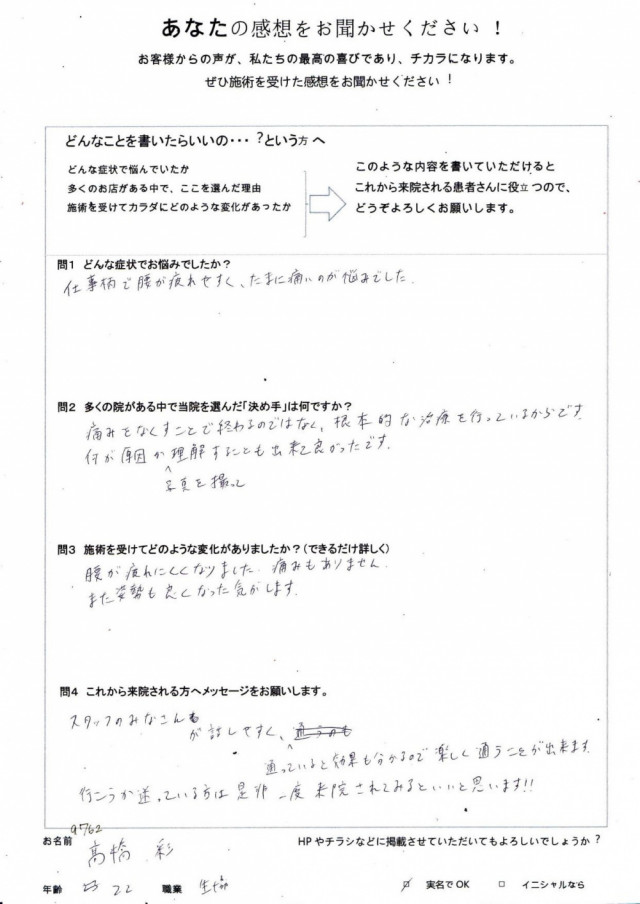 あなたの感想をお聞かせください！
お客様からの声が、私たちの最高の喜びであり、チカラになります。
ぜひ施術を受けた感想をお聞かせください！
どんなことを書いたらいいの・・・？という方へ
どんな症状で悩んでいたか
多くのお店がある中で、ここを選んだ理由
施術を受けてカラダにどのような変化があったか
このような内容を書いていただけると
これから来院される患者さんに役立つので、
どうぞよろしくお願いします。
問1 どんな症状でお悩みでしたか？
仕事柄で腰が疲れやすく、たまに痛いのが悩みでした。
問2 多くの院がある中で当院を選んだ「決め手」は何ですか？
痛みをなくすことで終わるのではなく、根本的な治療を行っているからです。
何が原因か理解することも出来て良かったです。
写真を撮って
問3 施術を受けてどのような変化がありましたか？（できるだけ詳しく）
腰が疲れにくくなりました。痛みもありません。
また姿勢も良くなった気がします。
問4 これから来院される方へメッセージをお願いします。
スタッフのみなさん
が話しやすく、
通っていると効果も分かるので楽しく通うことが出来ます。
行こうか迷っている方は是非一度来院されてみるといいと思います!!
9762
お名前 高橋 彩
HPやチラシなどに掲載させていただいてもよろしいでしょうか？
年齢 22 職業 実名でOK イニシャルなら